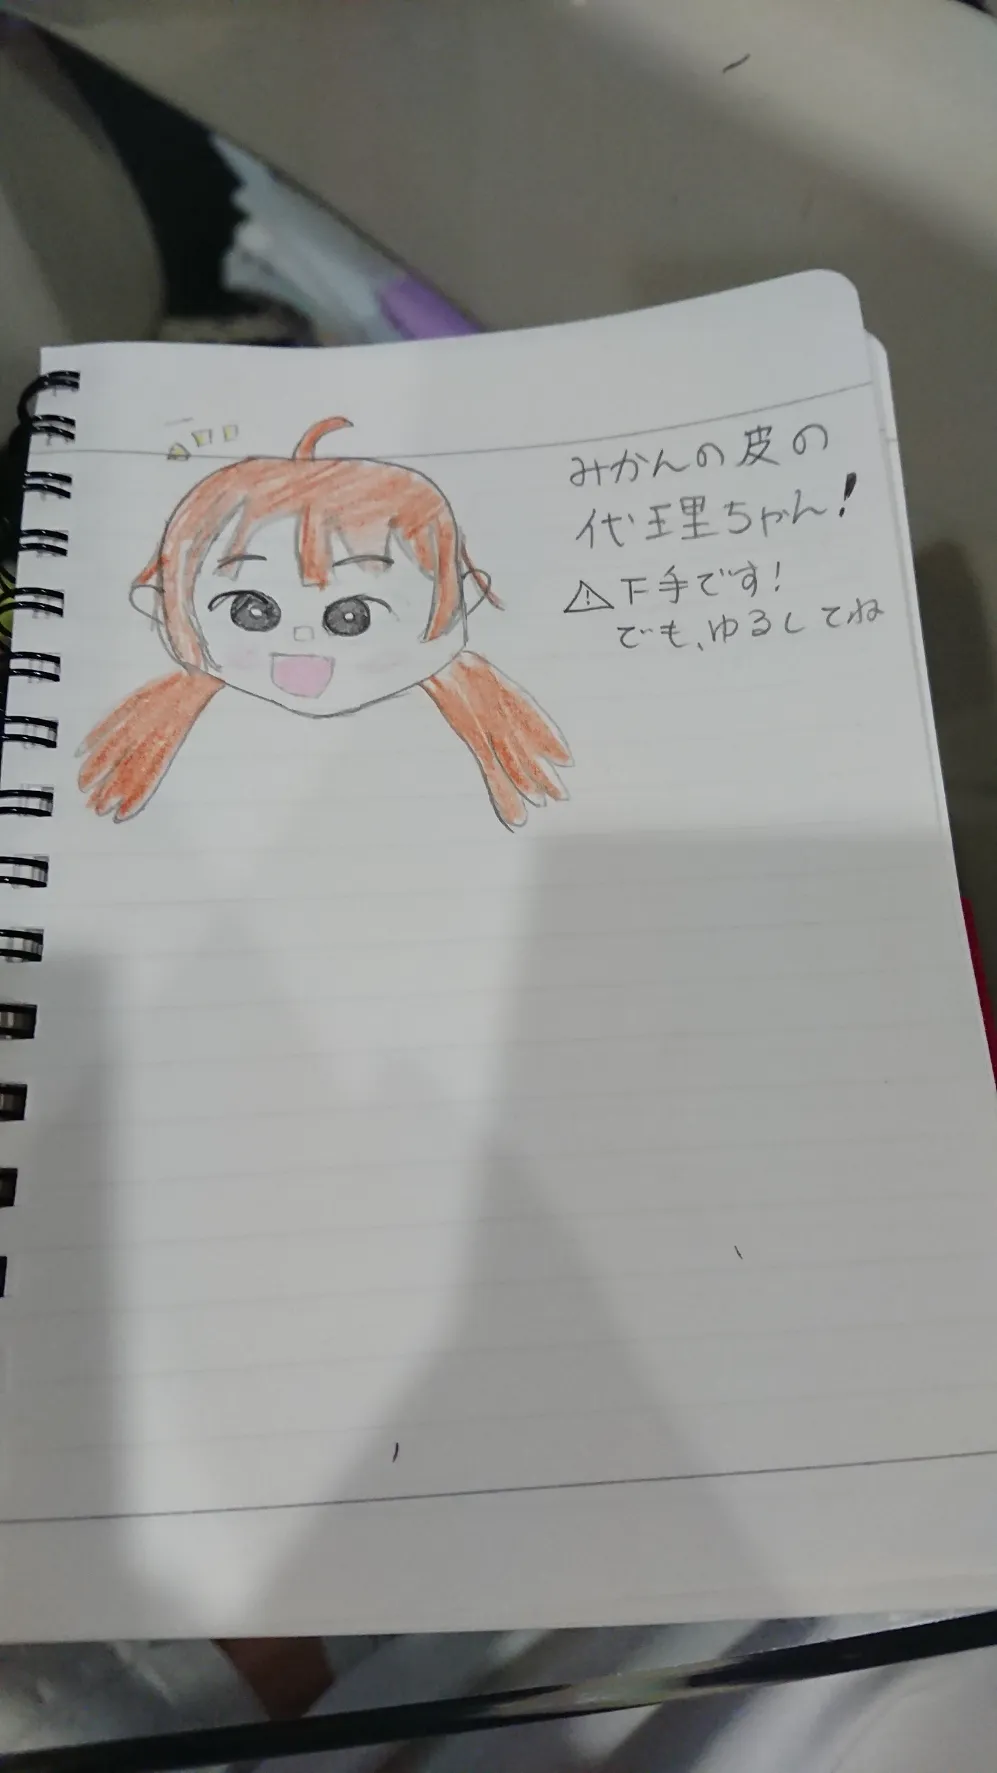 みかんの皮の
代理ちゃん!
⚠下手です!
でも、ゆるしてね